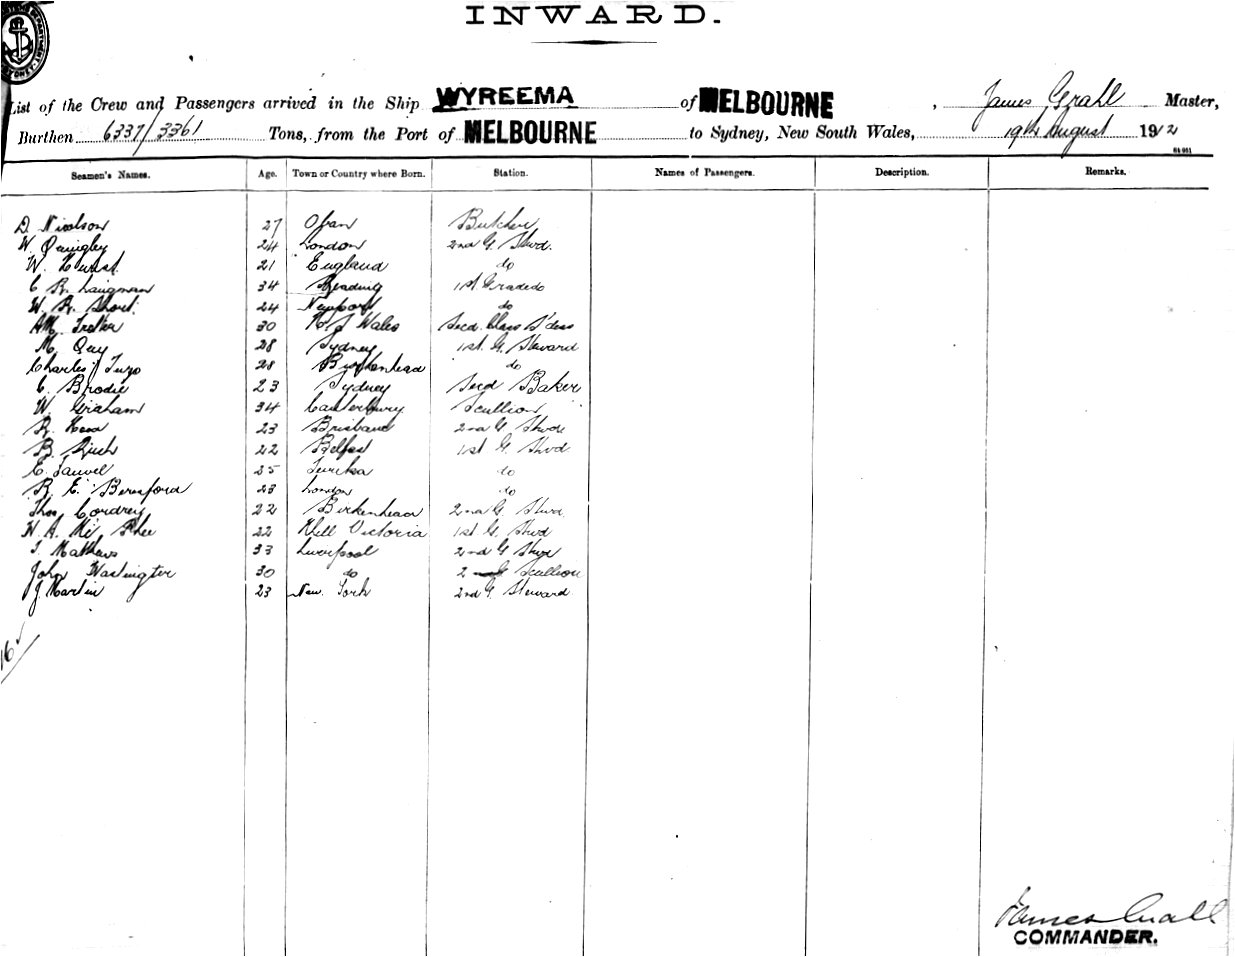 INWARD.
List of the Crew and Passengers arrived in the Ship WYREEMA of MELBOURNE, James Grahl Master,
Burthen 6337/3361 Tons, from the Port of MELBOURNE to Sydney, New South Wales, 19th August 1912
Seamen's Names. Age. Town or Country where Born. Station. Names of Passengers. Description. Remarks.
D. Nicolson 27 Oban Butcher
W. Quingley 24 London 2nd G. Stwd.
W. Hurst. 21 England do
C R. Langman 34 Reading 1st. Grade do
W. R. Short. 24 Newport do
AM. 30 N. S Wales Secd. Class S'dess
M. Quy 28 Sydney 1st. G. Steward
Charles 28 Birkenhead do
C. Brodie 23 Sydney Secd Baker
W. Graham 34 Canterbury Scullion
R. 23 Brisbane 2nd G. Stwd
B. 22 Belfast 1st G. Stwd
E. 25 do
R. E. Beresford 23 London do
Thos Cordrey 22 Birkenhead 2nd G. Stwd.
A. Mc Phee 22 Victoria 1st G. Stwd
T. Mathews 33 Liverpool 2nd G Stwd
John Washington 30 do 2 Scullion
J Martin 23 New York 2nd G. Steward
16
James Grahl
COMMANDER.